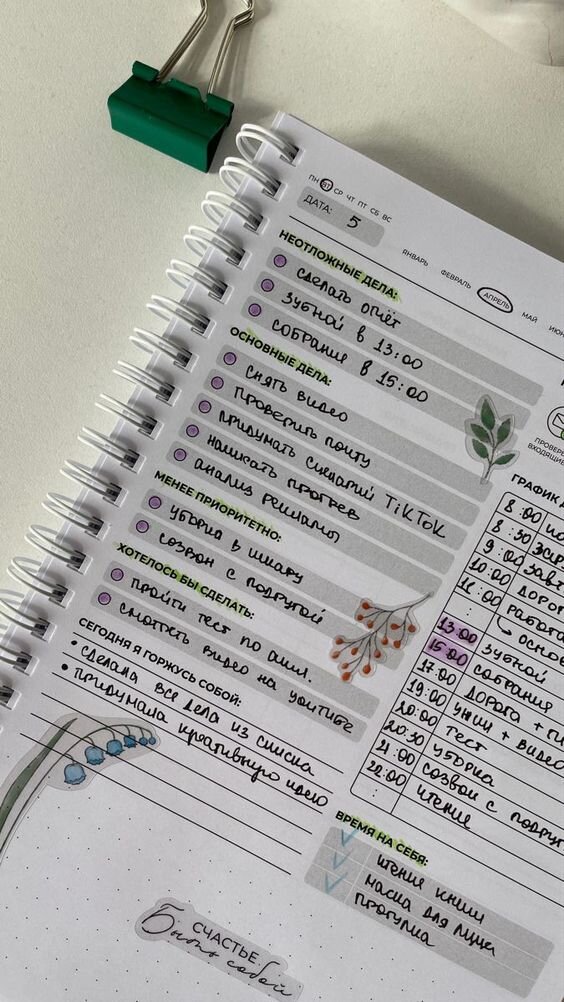 ПН ВТ СР ЧТ ПТ СБ ВС
ДАТА: 5
ЯНВАРЬ ФЕВРАЛЬ АПРЕЛЬ МАЙ
НЕОТЛОЖНЫЕ ДЕЛА:
сделать отчёт
зубной в 13:00
собрание в 15:00
ОСНОВНЫЕ ДЕЛА:
снять видео
проверить почту
придумать сценарий TikTok
написать прогрев
анализ рекламы
МЕНЕЕ ПРИОРИТЕТНО:
уборка в шкафу
созвон с подругой
ХОТЕЛОСЬ БЫ СДЕЛАТЬ:
пройти тест по англ.
смотреть видео на youtube
СЕГОДНЯ Я ГОРЖУСЬ СОБОЙ:
• сделала все дела из списка
• придумала креативную идею
ГРАФИК
8:00
8:30
9:00
10:00
11:00 работа
:
13:00 зубной
15:00 собрание
17:00 дорога +
19:00 ужин + видео
20:00 тест
20:30 уборка
21:00 созвон с подруг
22:00 чтение
:
ВРЕМЯ НА СЕБЯ:
чтение книги
маска для лица
прогулка
СЧАСТЬЕ:
Быть собой